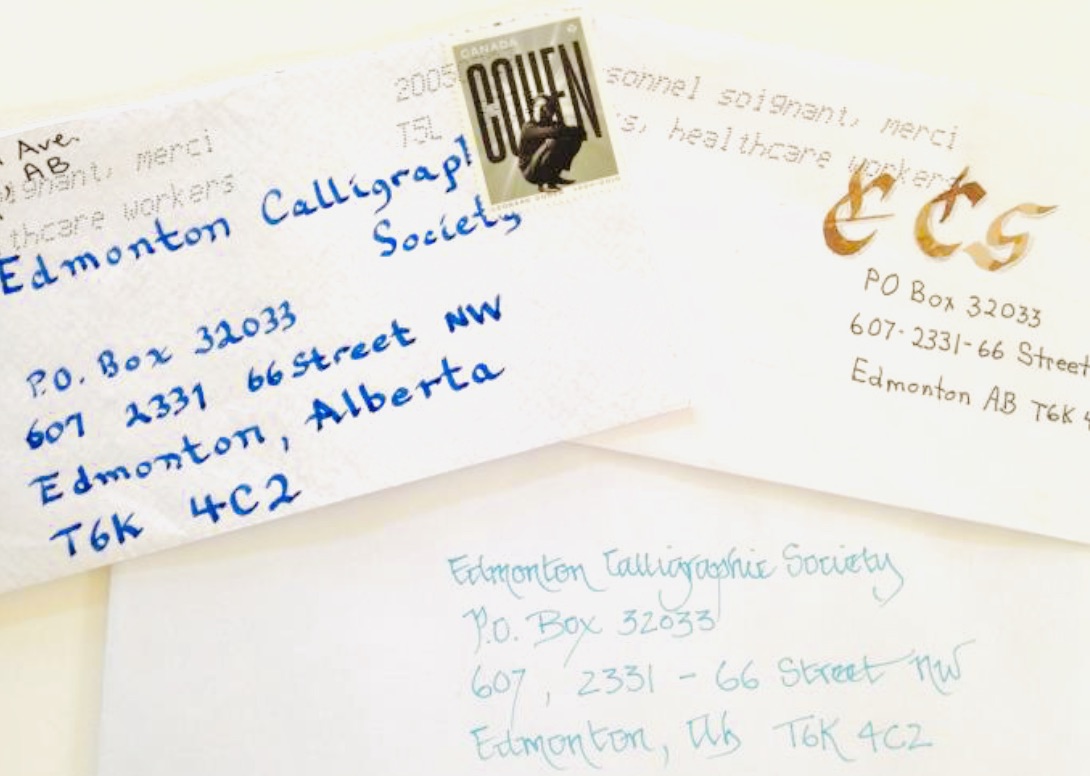 Ave.
AB
gnant, merci
thcare workers
Edmonton Calligraph
Society
P.O. Box 32033
607 2331 66 Street NW
Edmonton, Alberta
T6K 4C2
2005
T5L
CANADA
COHEN
sonnel soignant, merci
s, healthcare workers
ECS
PO Box 32033
607-2331-66 Street
Edmonton AB T6K 4
Edmonton Calligraphic Society
P.O. Box 32033
607, 2331 - 66 Street NW
Edmonton, Ab T6K 4C2